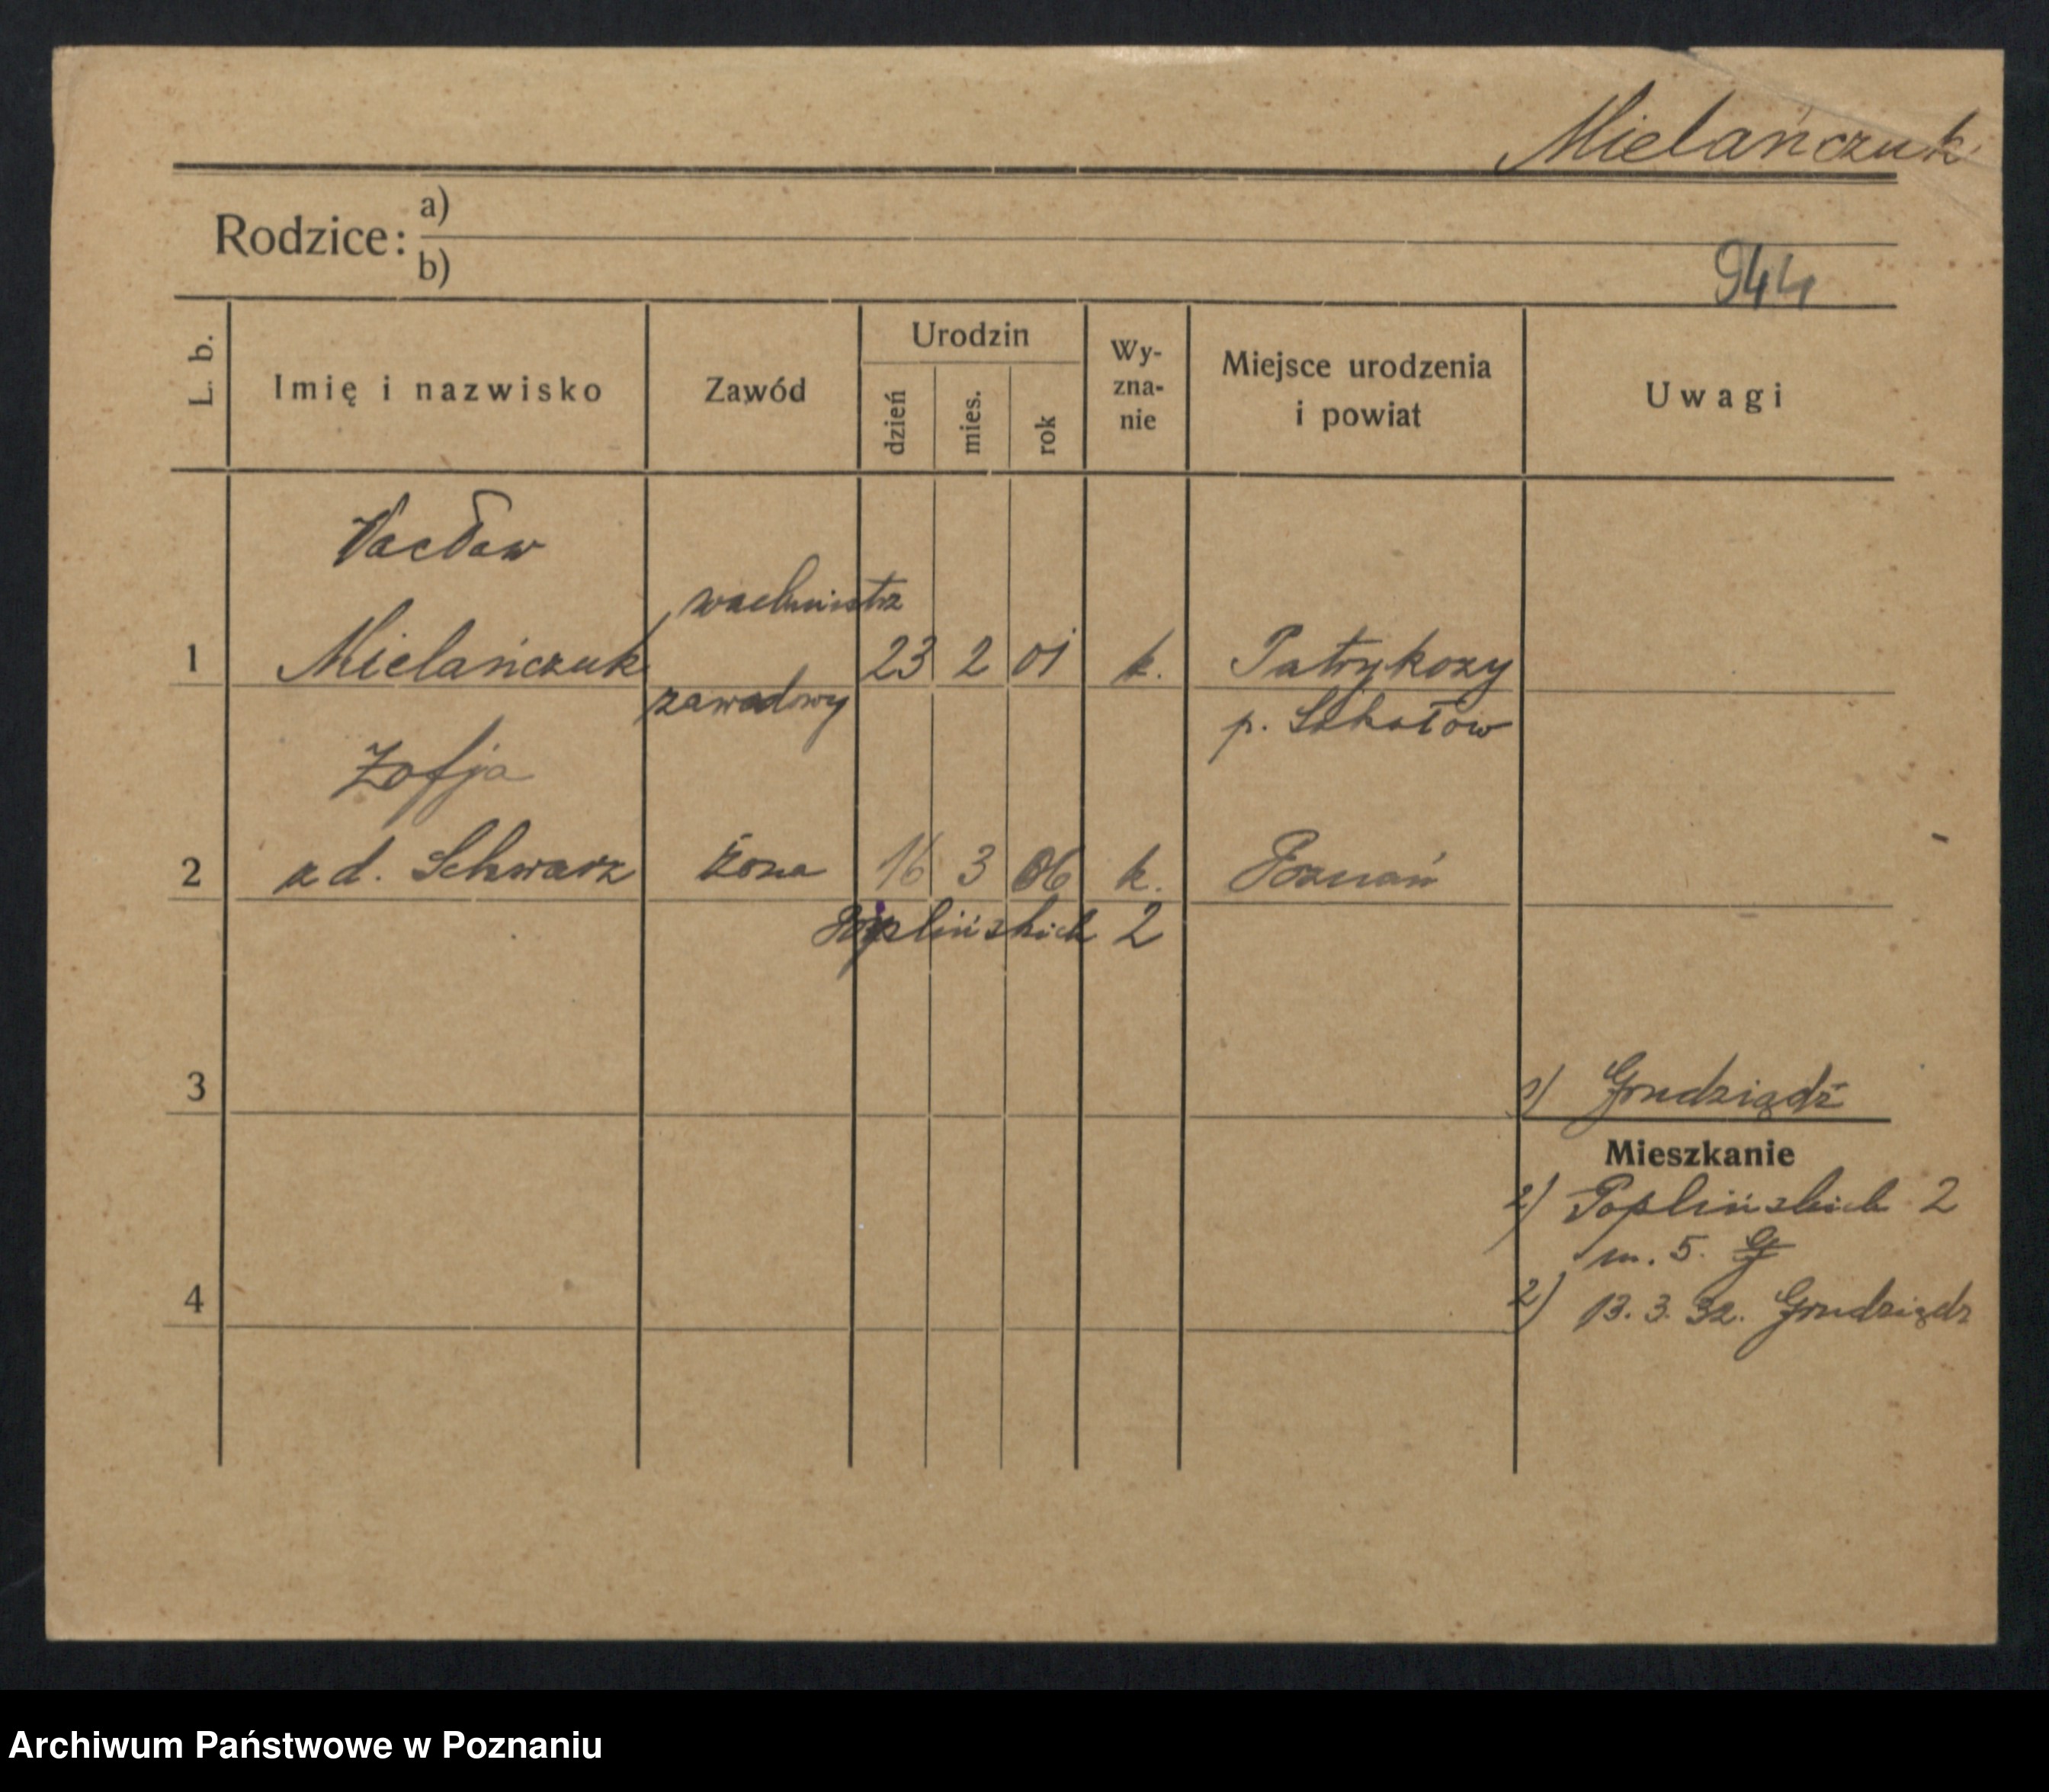 Mielańczuk
Rodzice: a)
b)
944
L. b.
Imię i nazwisko
Zawód
Urodzin
dzień
mies.
rok
Wy-
zna-
nie
Miejsce urodzenia
i powiat
Uwagi
Vacław
wachmistrz
1 Mielańczuk 23 2 01 k. Patrykozy
zawodowy p. Sokołów
Zofja
2 z d. Schwarz żona 16 3 06 k. Poznań
Poplińskich 2
3
1) Grudziądz
Mieszkanie
2) Poplińskich 2
m. 5.
4 2) 13. 3. 32. Grudziądz
Archiwum Państwowe w Poznaniu